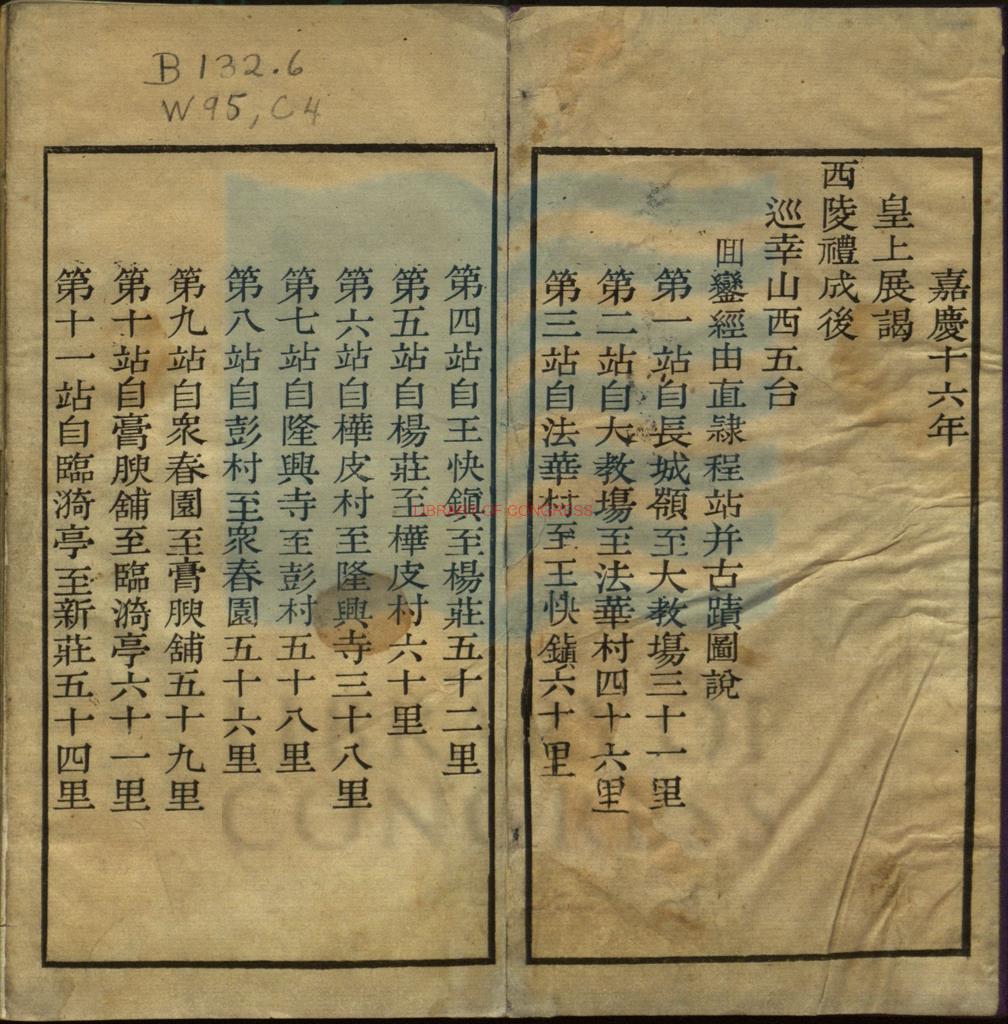 嘉慶十六年
皇上展謁
西陵禮成後
巡幸山西五台
回鑾經由直隸程站并古蹟圖說
第一站自長城嶺至大教場三十一里
第二站自大教場至法華村四十六里
第三站自法華村至王快鎮六十里
第四站自王快鎮至楊莊五十二里
第五站自楊莊至樺皮村六十里
第六站自樺皮村至隆興寺三十八里
第七站自隆興寺至彭村五十八里
第八站自彭村至眾春園五十六里
第九站自眾春園至膏腴舖五十九里
第十站自膏腴舖至臨漪亭六十一里
第十一站自臨漪亭至新莊五十四里
B 132.6
W95, C4
LIBRARY OF CONGRESS